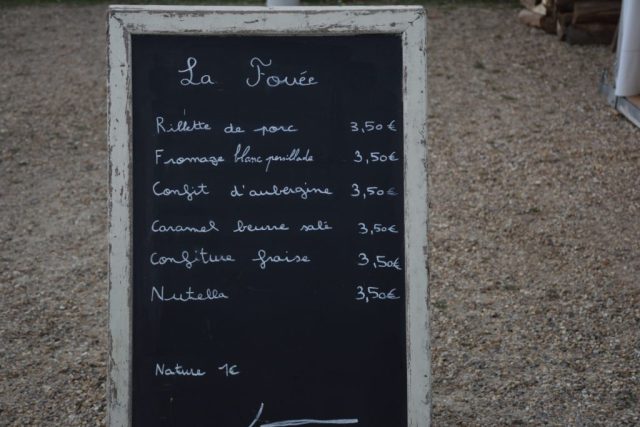 La Fouée
Rillette de porc 3,50€
Fromage blanc persillade 3,50€
Confit d'aubergine 3,50€
Caramel beurre salé 3,50€
Confiture fraise 3,50€
Nutella 3,50€
Nature 1€